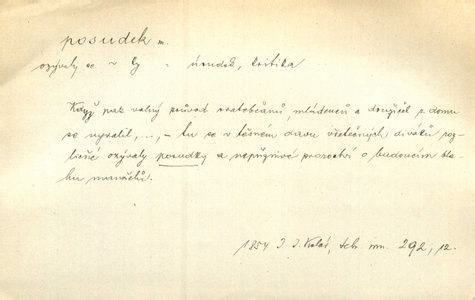 posudek m.
ozývaly se ~ ky = úsudek, kritika
Když pak valný průvod svatebčanů, mládenců a družiček z domu
se vyvalil, ..., – tu se v těsném davu všetečných divákův roz-
ličné ozývaly posudky a nepříznivé proroctví o budoucím bla-
hu manželů.
1854 J. J. Kolár, 292, 12.